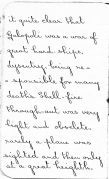 it quite clear that
Galapoli was a war of
great hard ships,
dysentry being re-
- sponsible for many
deaths. Shell-fire
through-out was very
light and obsolete,
rarely a plane was
sighted and then only
at a great heighth.